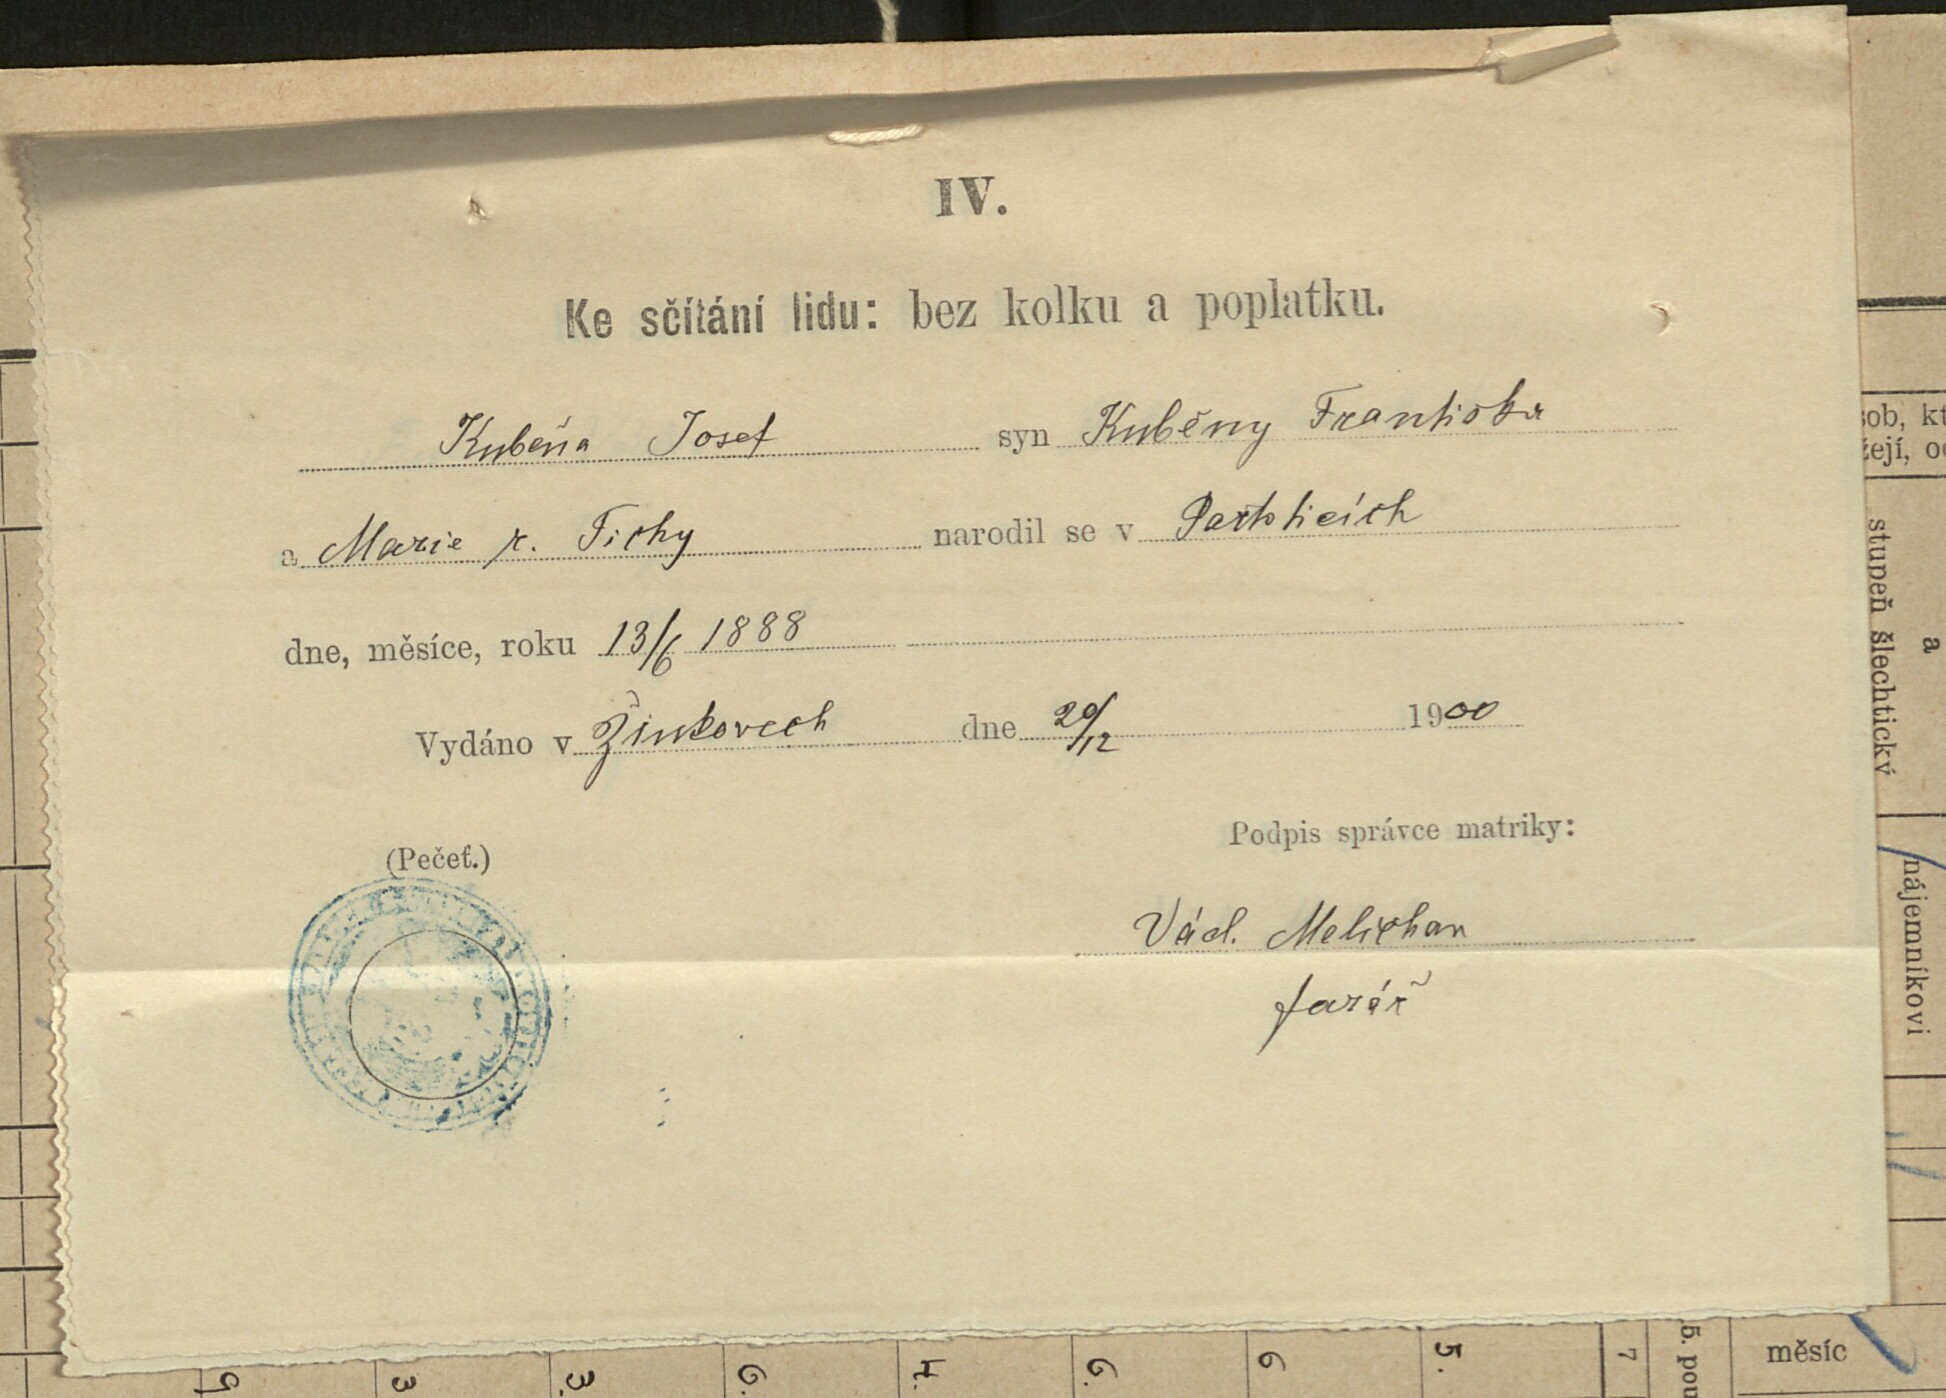 IV.
Ke sčítání lidu: bez kolku a poplatku.
Kuběna Josef syn Kuběny Františka
a Marie r. Tichy narodil se v
dne, měsíce, roku 13/6 1888
Vydáno v Žinkovech dne 20/12 1900
Podpis správce matriky:
(Pečeť.)
Václ. Melichar
farář
sob, kt
žejí, oc
stupeň šlechtický
a
nájemníkovi
9 3 3. 6. 4. 6. 6 5. 7
5. pou
měsíc